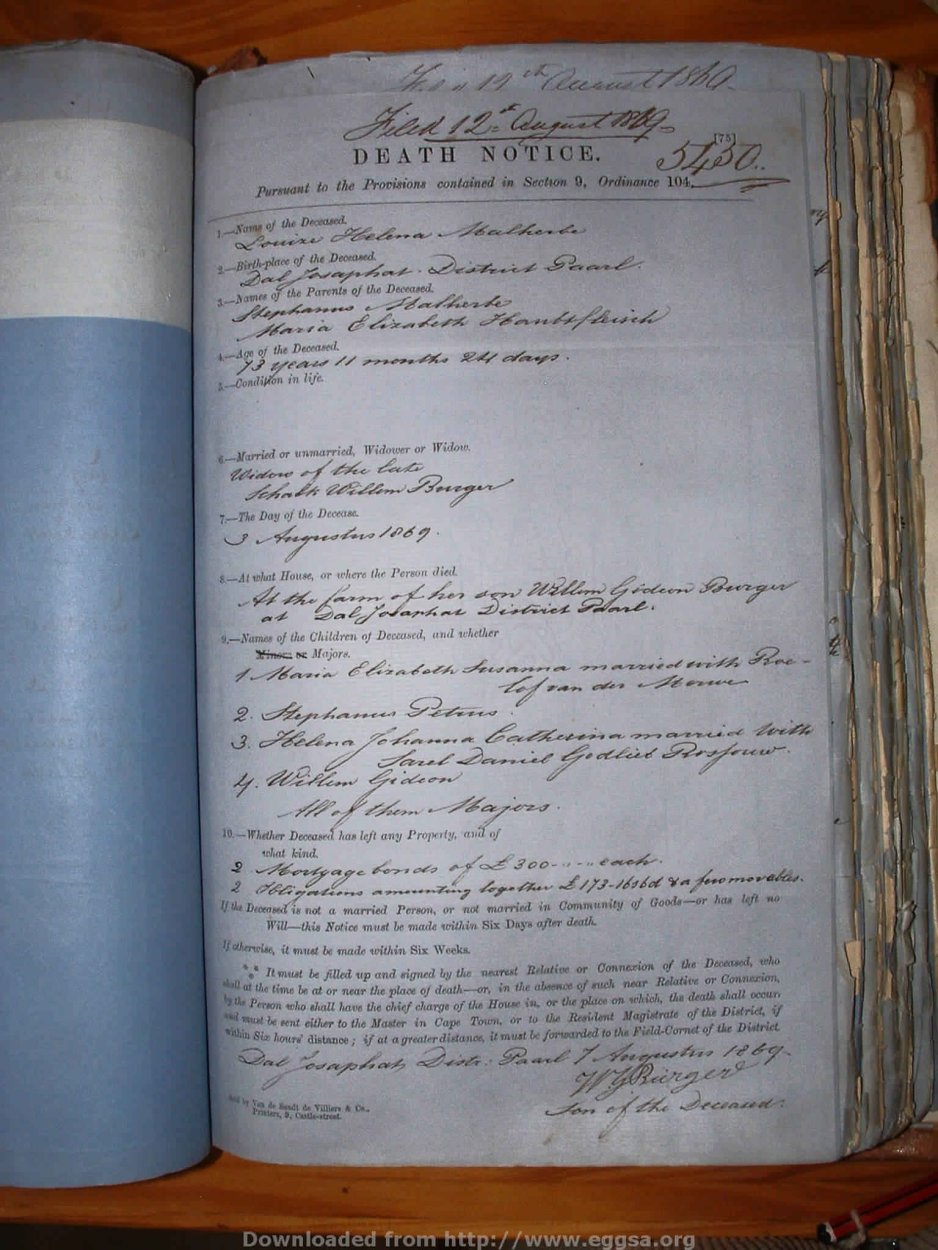 12th August 1869.
Filed 12th August 1869.
[75]
DEATH NOTICE.
5450.
Pursuant to the Provisions contained in Section 9, Ordinance 104.
1.—Name of the Deceased.
Louize Helena Malherbe
2.—Birth-place of the Deceased.
Dal Josaphat. District Paarl.
3.—Names of the Parents of the Deceased.
Stephanus Malherbe
Maria Elizabeth Haubtfleisch
4.—Age of the Deceased.
73 years 11 months 24 days.
5.—Condition in life.
6.—Married or unmarried, Widower or Widow.
Widow of the late
Schalk Willem Burger
7.—The Day of the Decease.
3 Augustus 1869.
8.—At what House, or where the Person died.
At the farm of her son Willem Gideon Burger
at Dal Josaphat District Paarl.
9.—Names of the Children of Deceased, and whether
Minors or Majors.
1 Maria Elizabeth Susanna married with Roe-
lof van der Merwe
2. Stephanus Petrus.
3. Helena Johanna Catherina married with
Sarel Daniel Godlieb Rossouw.
4. Willem Gideon
All of them Majors.
10.—Whether Deceased has left any Property, and of
what kind.
2 Mortgage bonds of £300-"-" each.
2 Obligations amounting together £173-16s6d & a few movables.
If the Deceased is not a married Person, or not married in Community of Goods—or has left no
Will—this Notice must be made within Six Days after death.
If otherwise, it must be made within Six Weeks.
*** It must be filled up and signed by the nearest Relative or Connexion of the Deceased, who
shall at the time be at or near the place of death—or, in the absence of such near Relative or Connexion,
by the Person who shall have the chief charge of the House in, or the place on which, the death shall occur:
and must be sent either to the Master in Cape Town, or to the Resident Magistrate of the District, if
within Six hours' distance; if at a greater distance, it must be forwarded to the Field-Cornet of the District
Dal Josaphat, Distr: Paarl 7 Augustus 1869.
WGBurger
Son of the Deceased.
Sold by Van de Sandt de Villiers & Co.,
Printers, 9, Castle-street.
Downloaded from http://www.eggsa.org